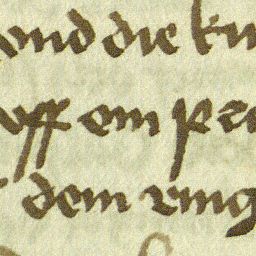 vnd die ku
vff ein pr
dem ring